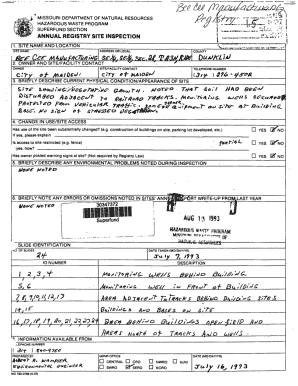 Bee Cee Manufacturing
Registry
1.5
MISSOURI DEPARTMENT OF NATURAL RESOURCES
HAZARDOUS WASTE PROGRAM
SUPERFUND SECTION
ANNUAL REGISTRY SITE INSPECTION
1. SITE NAME AND LOCATION
SITE NAME
COUNTY
BEE CEE MANUFACTURING
DUNKLIN
2. OWNER AND SITE/FACILITY CONTACT
OWNER
SITE/FACILITY CONTACT
TELEPHONE
CITY OF MALDEN
CITY OF MALDEN
276-4502
3. BRIEFLY DESCRIBE CURRENT PHYSICAL CONDITION/APPEARANCE OF SITE
SITE SHOWING VEGETATIVE GROWTH. NOTED THAT SOIL HAD BEEN
DISTURBED ADJACENT TO RAILROAD TRACKS. MONITORING WELLS
PROTECTED FROM VEHICULAR TRAFFIC. EQUIPMENT ON SITE AT BUILDING
BASE. NO SIGN OF STRESSED VEGETATION.
4. CHANGE IN USE/SITE ACCESS
Has use of the site been substantially changed? (e.g. construction of buildings on site, parking lot developed, etc.)
YES NO
If yes, please explain
Is access to site restricted? (e.g. fence)
PARTIAL
YES NO
Has owner posted warning signs at site? (Not required by Registry Law)
YES NO
5. BRIEFLY DESCRIBE ANY ENVIRONMENTAL PROBLEMS NOTED DURING INSPECTION
NONE NOTED
6. BRIEFLY NOTE ANY ERRORS OR OMISSIONS NOTED IN SITES' ANNUAL REPORT WRITE-UP FROM LAST YEAR
NONE NOTED
30347372
Superfund
AUG 13 1993
HAZARDOUS WASTE PROGRAM
MISSOURI DEPARTMENT OF
NATURAL RESOURCES
SLIDE IDENTIFICATION
NO. OF SLIDES
DATE TAKEN
24
July 7, 1993
ID NUMBER
DESCRIPTION
1, 2, 3, 4
MONITORING WELLS BEHIND BUILDING
5, 6
MONITORING WELL IN FRONT OF BUILDING
7, 8, 9, 10, 11, 12, 13
AREA ADJACENT TO TRACKS BEHIND BUILDING SITES
14, 15
BUILDINGS AND BASES ON SITE
16, 17, 18, 19, 20, 21, 22, 23, 24
AREA BEHIND BUILDINGS OPEN FIELD AND
AREAS NORTH OF TRACKS AND WELLS.
7. INFORMATION AVAILABLE FROM
TELEPHONE NUMBER
PREPARED BY
ROBERT K.
ENVIRONMENTAL ENGINEER
CENTRAL
July 16, 1993